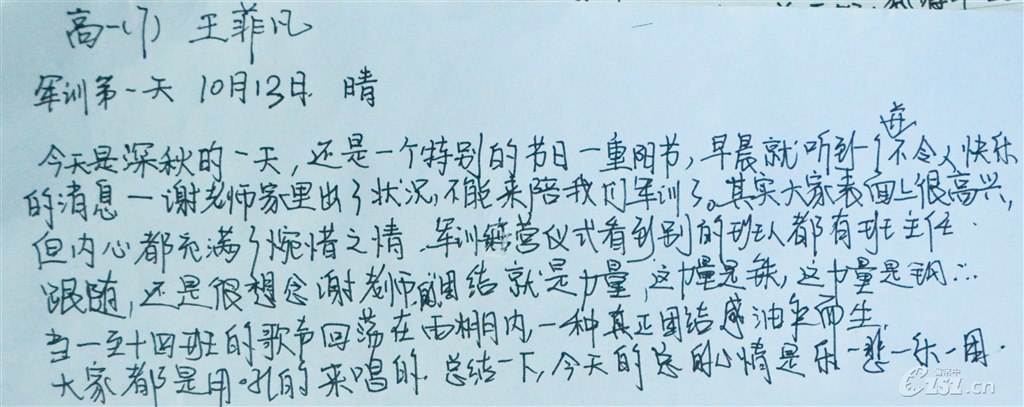 高一(7) 王菲凡
军训第一天 10月13日 晴
今天是深秋的一天，还是一个特别的节日一重阳节，早晨就听到一个并不令人快乐
的消息一谢老师家里出了状况，不能来陪我们军训了。其实大家表面上很高兴，
但内心都充满了惋惜之情.军训营仪式看到别的班级都有班主任
跟随，还是很想念谢老师的团结就是力量，这力量是铁，这力量是钢∴
当一至十四班的歌声回荡在雨棚内，一种真正团结感油然而生，
大家都是用吼的来唱的.总结一下，今天的总的心情是乐一悲一乐一困.
151.cn